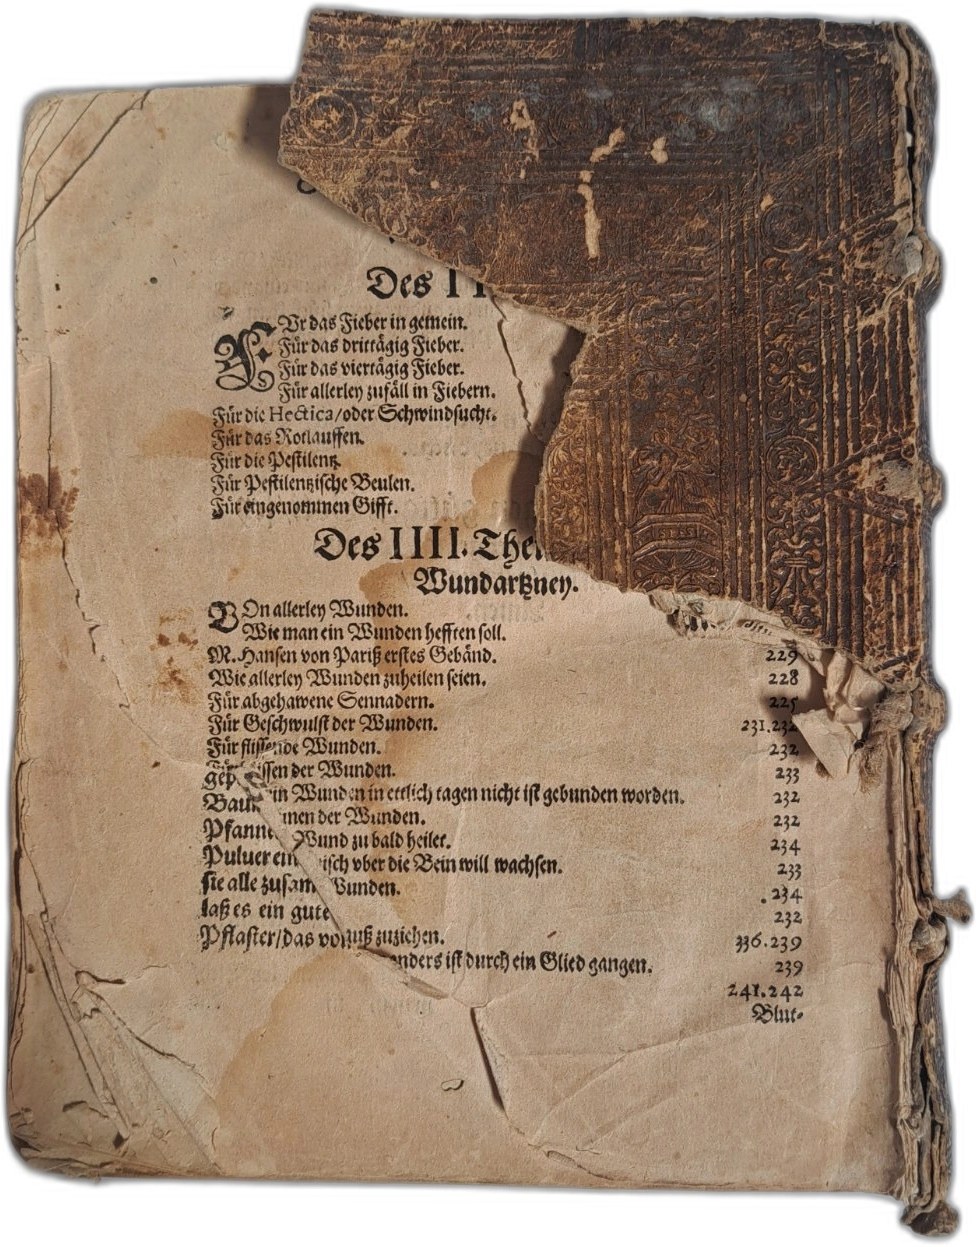 Des II
FVr das Fieber in gemein.
Für das drittägig Fieber.
Für das viertägig Fieber.
Für allerley zufäll in Fiebern.
Für die Hectica/oder Schwindsucht.
Für das Rotlauffen.
Für die Pestilentz.
Für Pestilentzische Beulen.
Für eingenommen Gifft.
Des IIII. Thei
Wundartzney.
VOn allerley Wunden.
Wie man ein Wunden hefften soll.
M. Hansen von Pariß erstes Gebänd. 229
Wie allerley Wunden zuheilen seien. 228
Für abgehawene Sennadern. 225
Für Geschwulst der Wunden. 231.232
Für fliessende Wunden. 232
issen der Wunden. 233
gep
in Wunden in ettlich tagen nicht ist gebunden worden. 232
Baum
nnen der Wunden. 232
Pfanne
Wund zu bald heilet. 234
Puluer ein
isch vber die Bein will wachsen. 233
sie alle zusam
Wunden. .234
laß es ein gute 232
Pflaster/das vor
auß zuziehen. 336.239
anders ist durch ein Glied gangen. 239
241.242
Blut-